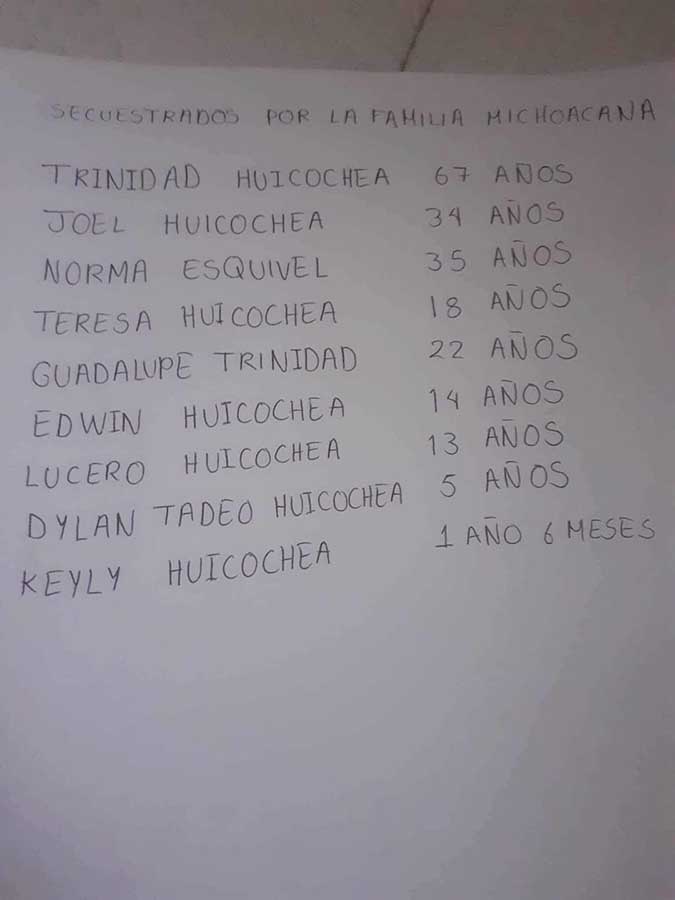 SECUESTRADOS POR LA FAMILIA MICHOACANA
TRINIDAD HUICOCHEA 67 AÑOS
JOEL HUICOCHEA 34 AÑOS
NORMA ESQUIVEL 35 AÑOS
TERESA HUICOCHEA 18 AÑOS
GUADALUPE TRINIDAD 22 AÑOS
EDWIN HUICOCHEA 14 AÑOS
LUCERO HUICOCHEA 13 AÑOS
DYLAN TADEO HUICOCHEA 5 AÑOS
KEYLY HUICOCHEA 1 AÑO 6 MESES